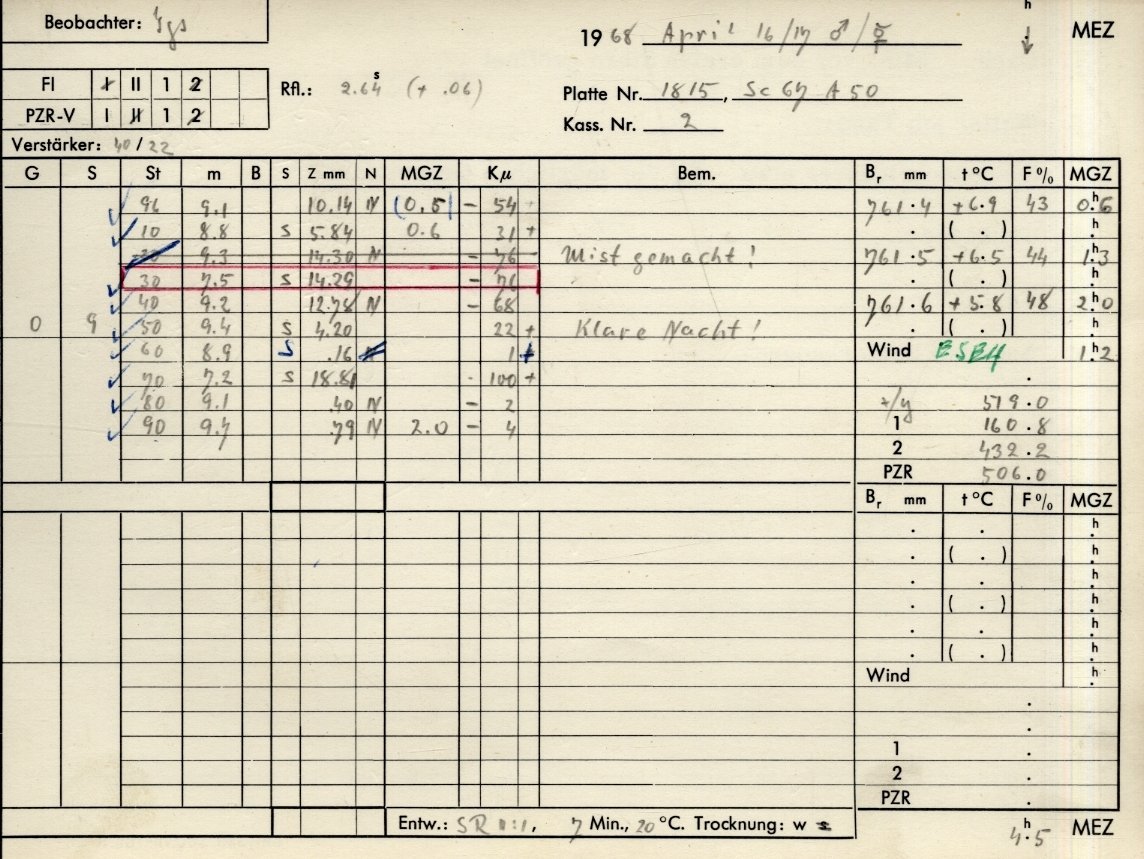 Beobachter: Ygs
1968 April 16/17 ♂/☿ h MEZ
FI I II 1 2
Rfl.: 2.64 s (+ .06)
Platte Nr. 1815, Sc 67 A 50
PZR-V I II 1 2
Kass. Nr. 2
Verstärker: 40 / 22
G S St m B S Z mm N MGZ Kμ Bem. Br mm t °C F % MGZ
96 9.1 10.14 N (0.5) - 54 + 761.4 +6.9 43 0.h6
10 8.8 S 5.84 0.6 31 + . ( . ) h
20 9.3 14.30 N - 76 - Mist gemacht! 761.5 +6.5 44 1.h3
30 7.5 S 14.29 - 76 . ( . )
40 9.2 12.78 N - 68 761.6 +5.8 48 2.h0
0 9 50 9.4 S 4.20 22 + Klare Nacht! . ( . ) h
60 8.9 S .16 N 1 + Wind ESE4 1.h2
70 7.2 S 18.81 100 + .
80 9.1 .40 N - 2 x/y 519.0
90 9.4 .79 N 2.0 - 4 1 160.8
2 432.2
PZR 506.0
Br mm t °C F % MGZ
. . h
. ( . ) h
. . h
. ( . ) h
. . h
. ( . ) h
Wind h
.
.
1 .
2 .
PZR .
Entw.: SR 1:1, 7 Min., 20 °C. Trocknung: w s
4.h5 MEZ